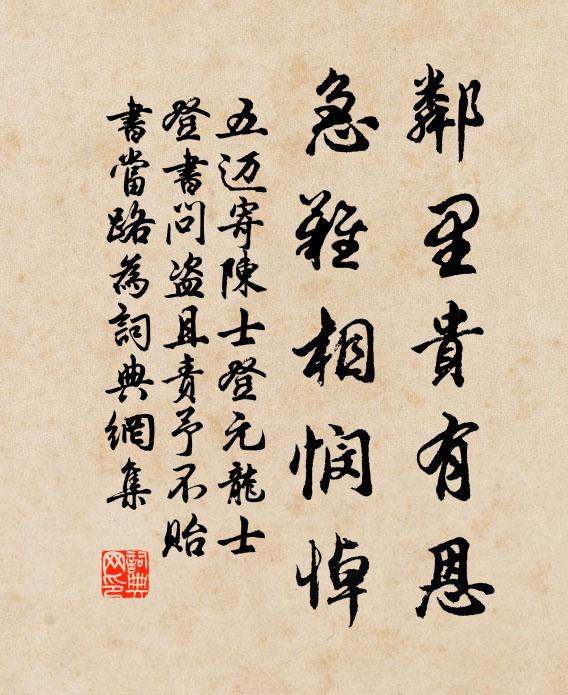 鄰里貴有恩
急難相憫悼
五迈寄陳士登元龍士
登書問盗且責予不貽
書當路為詞典網集
詞典网印